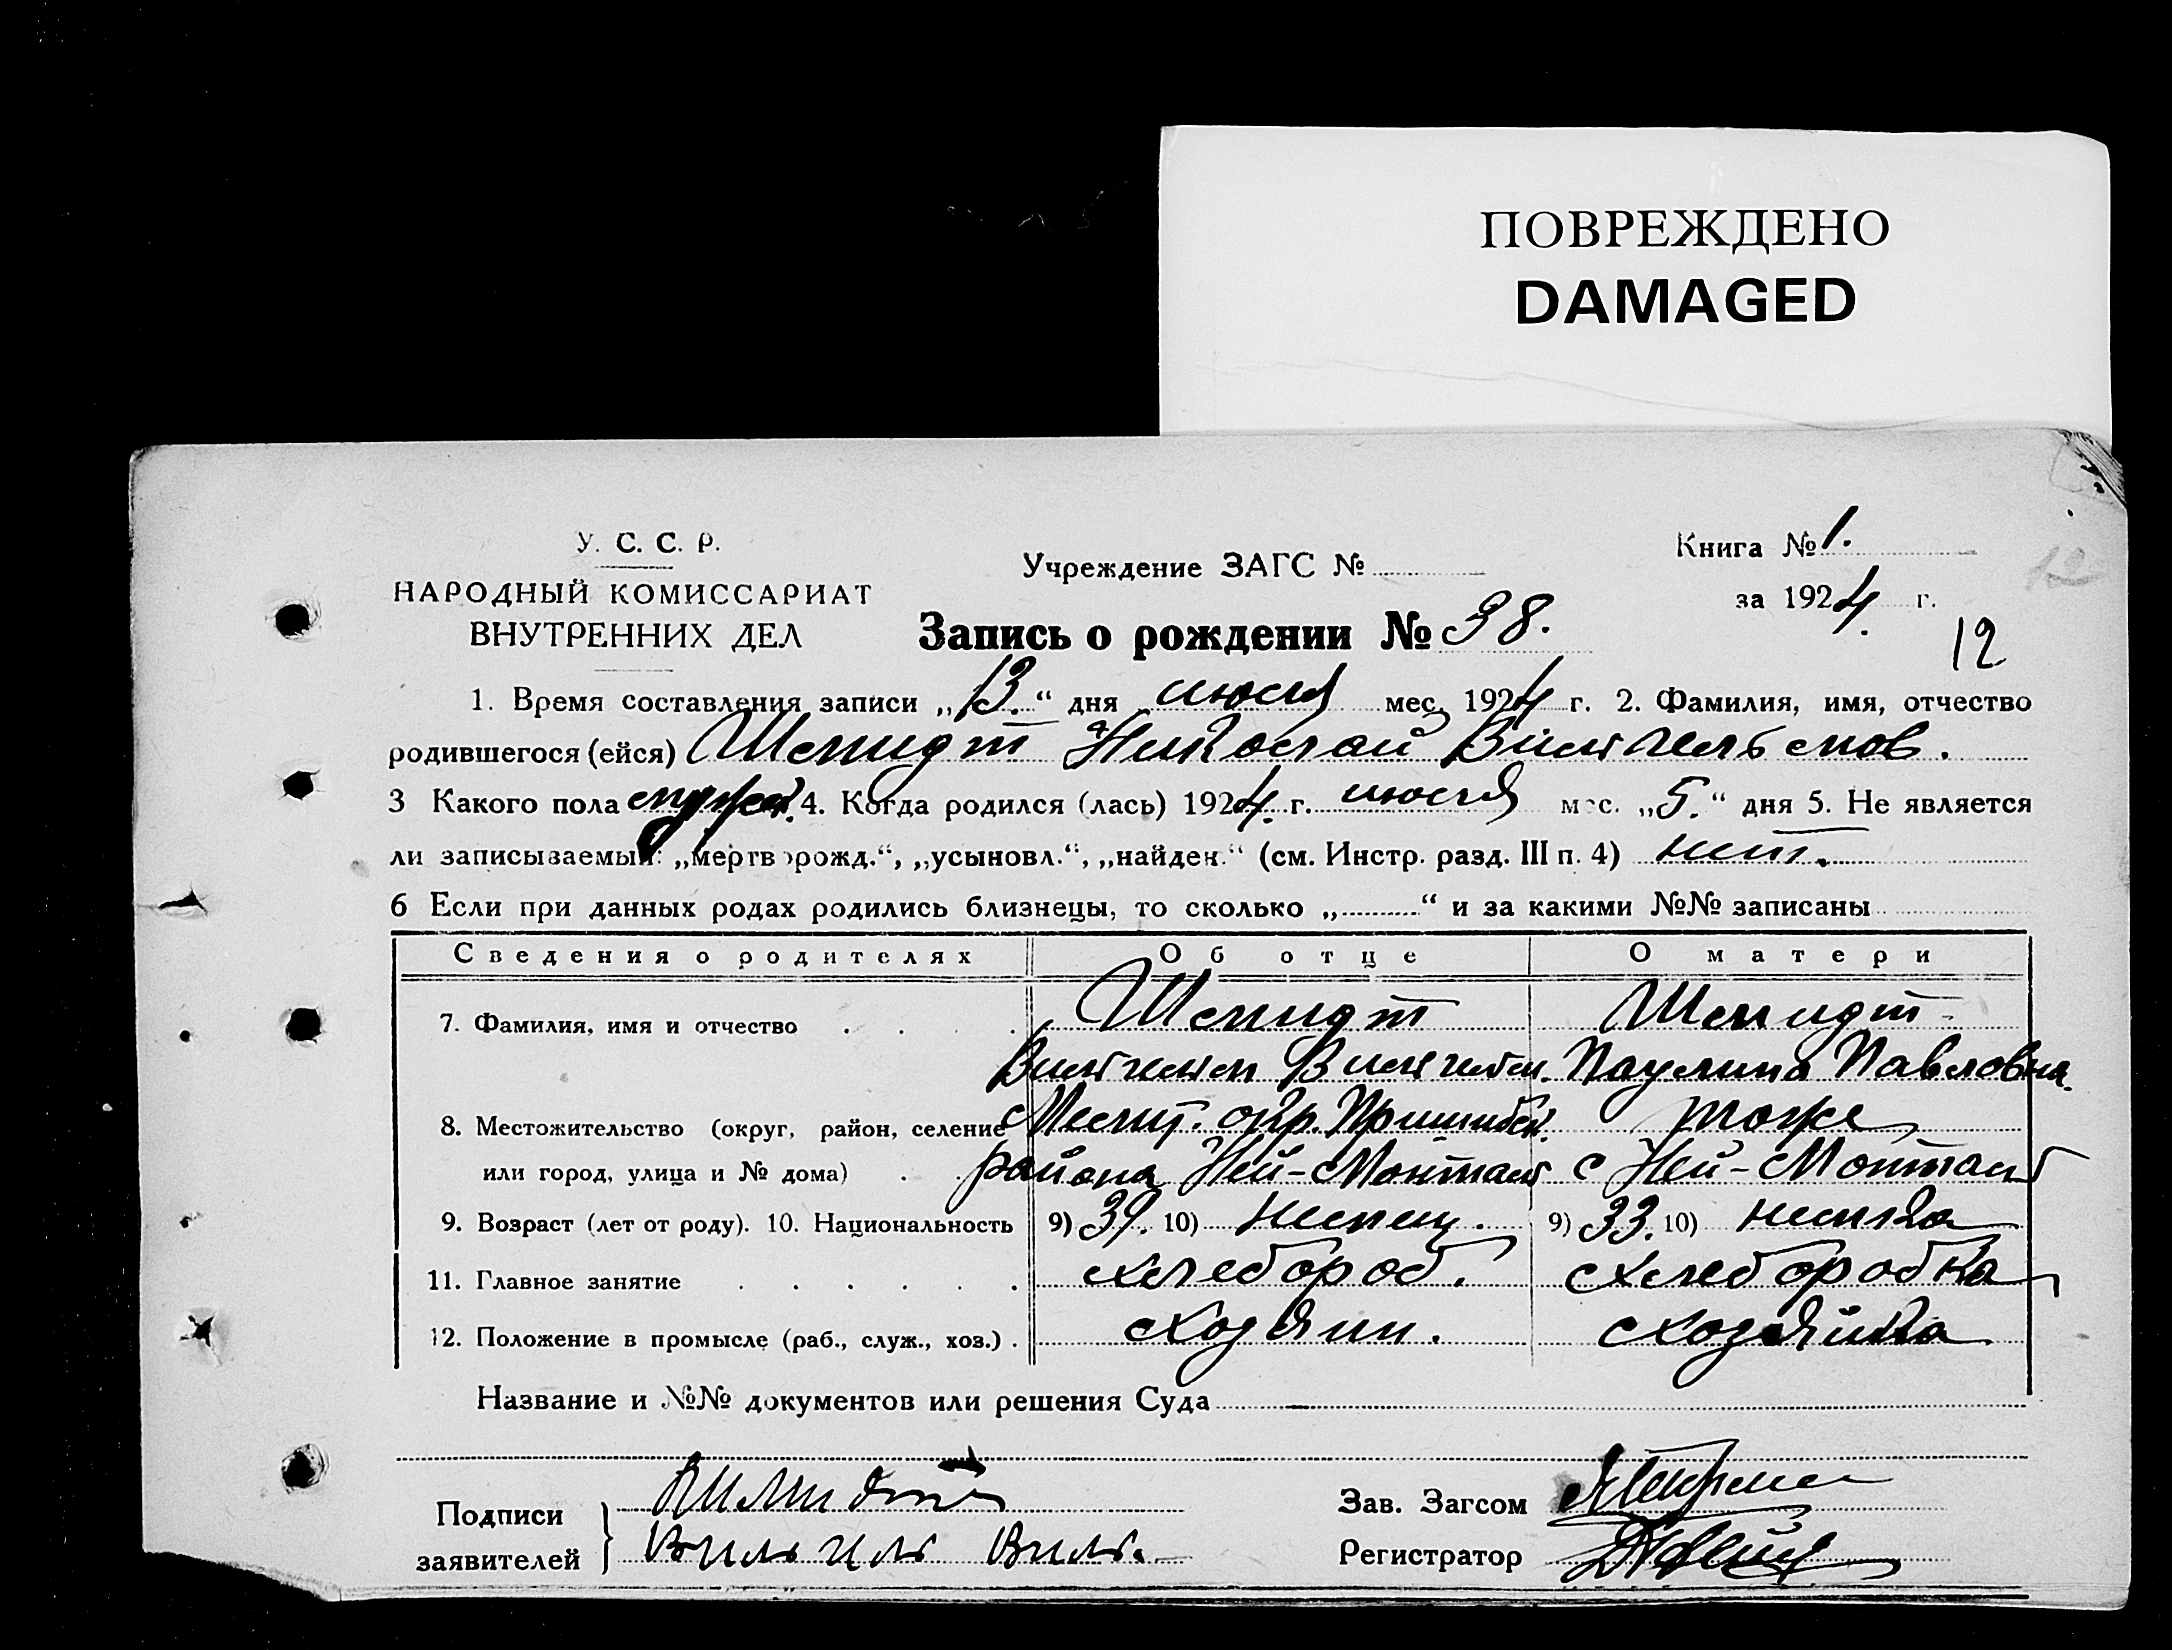 ПОВРЕЖДЕНО
DAMAGED
У. С. С. Р.
НАРОДНЫЙ КОМИССАРИАТ
ВНУТРЕННИХ ДЕЛ
Учреждение ЗАГС №
Запись о рождении № 38.
Книга № 1.
за 1924 г.
12
12
1. Время составления записи „13.“ дня июля мес. 1924 г. 2. Фамилия, имя, отчество
родившегося (ейся) Шмидт Николай Вильгельмов.
3 Какого пола мужск. 4. Когда родился (лась) 1924. г. июля мес. „5.“ дня 5. Не является
ли записываемый: „мертворожд.“, „усыновл.“, „найден.“ (см. Инстр. разд. III п. 4) нет.
6 Если при данных родах родились близнецы, то сколько „..........“ и за какими №№ записаны
Сведения о родителях Об отце О матери
7. Фамилия, имя и отчество Шмидт Шмидт
Вильгельм Вильгельм. Паулина Павловна.
8. Местожительство (округ, район, селение Мелит. окр. Пришибск. тоже
или город, улица и № дома) района Ней-Монталь с Ней-Монталь
9. Возраст (лет от роду). 10. Национальность 9) 39. 10) немец. 9) 33. 10) немка
11. Главное занятие хлебороб. хлеборобка
12. Положение в промысле (раб., служ., хоз.) хозяин. хозяйка
Название и №№ документов или решения Суда —
Подписи
заявителей
Шмидт
Вильгель Виль.
Зав. Загсом
Регистратор